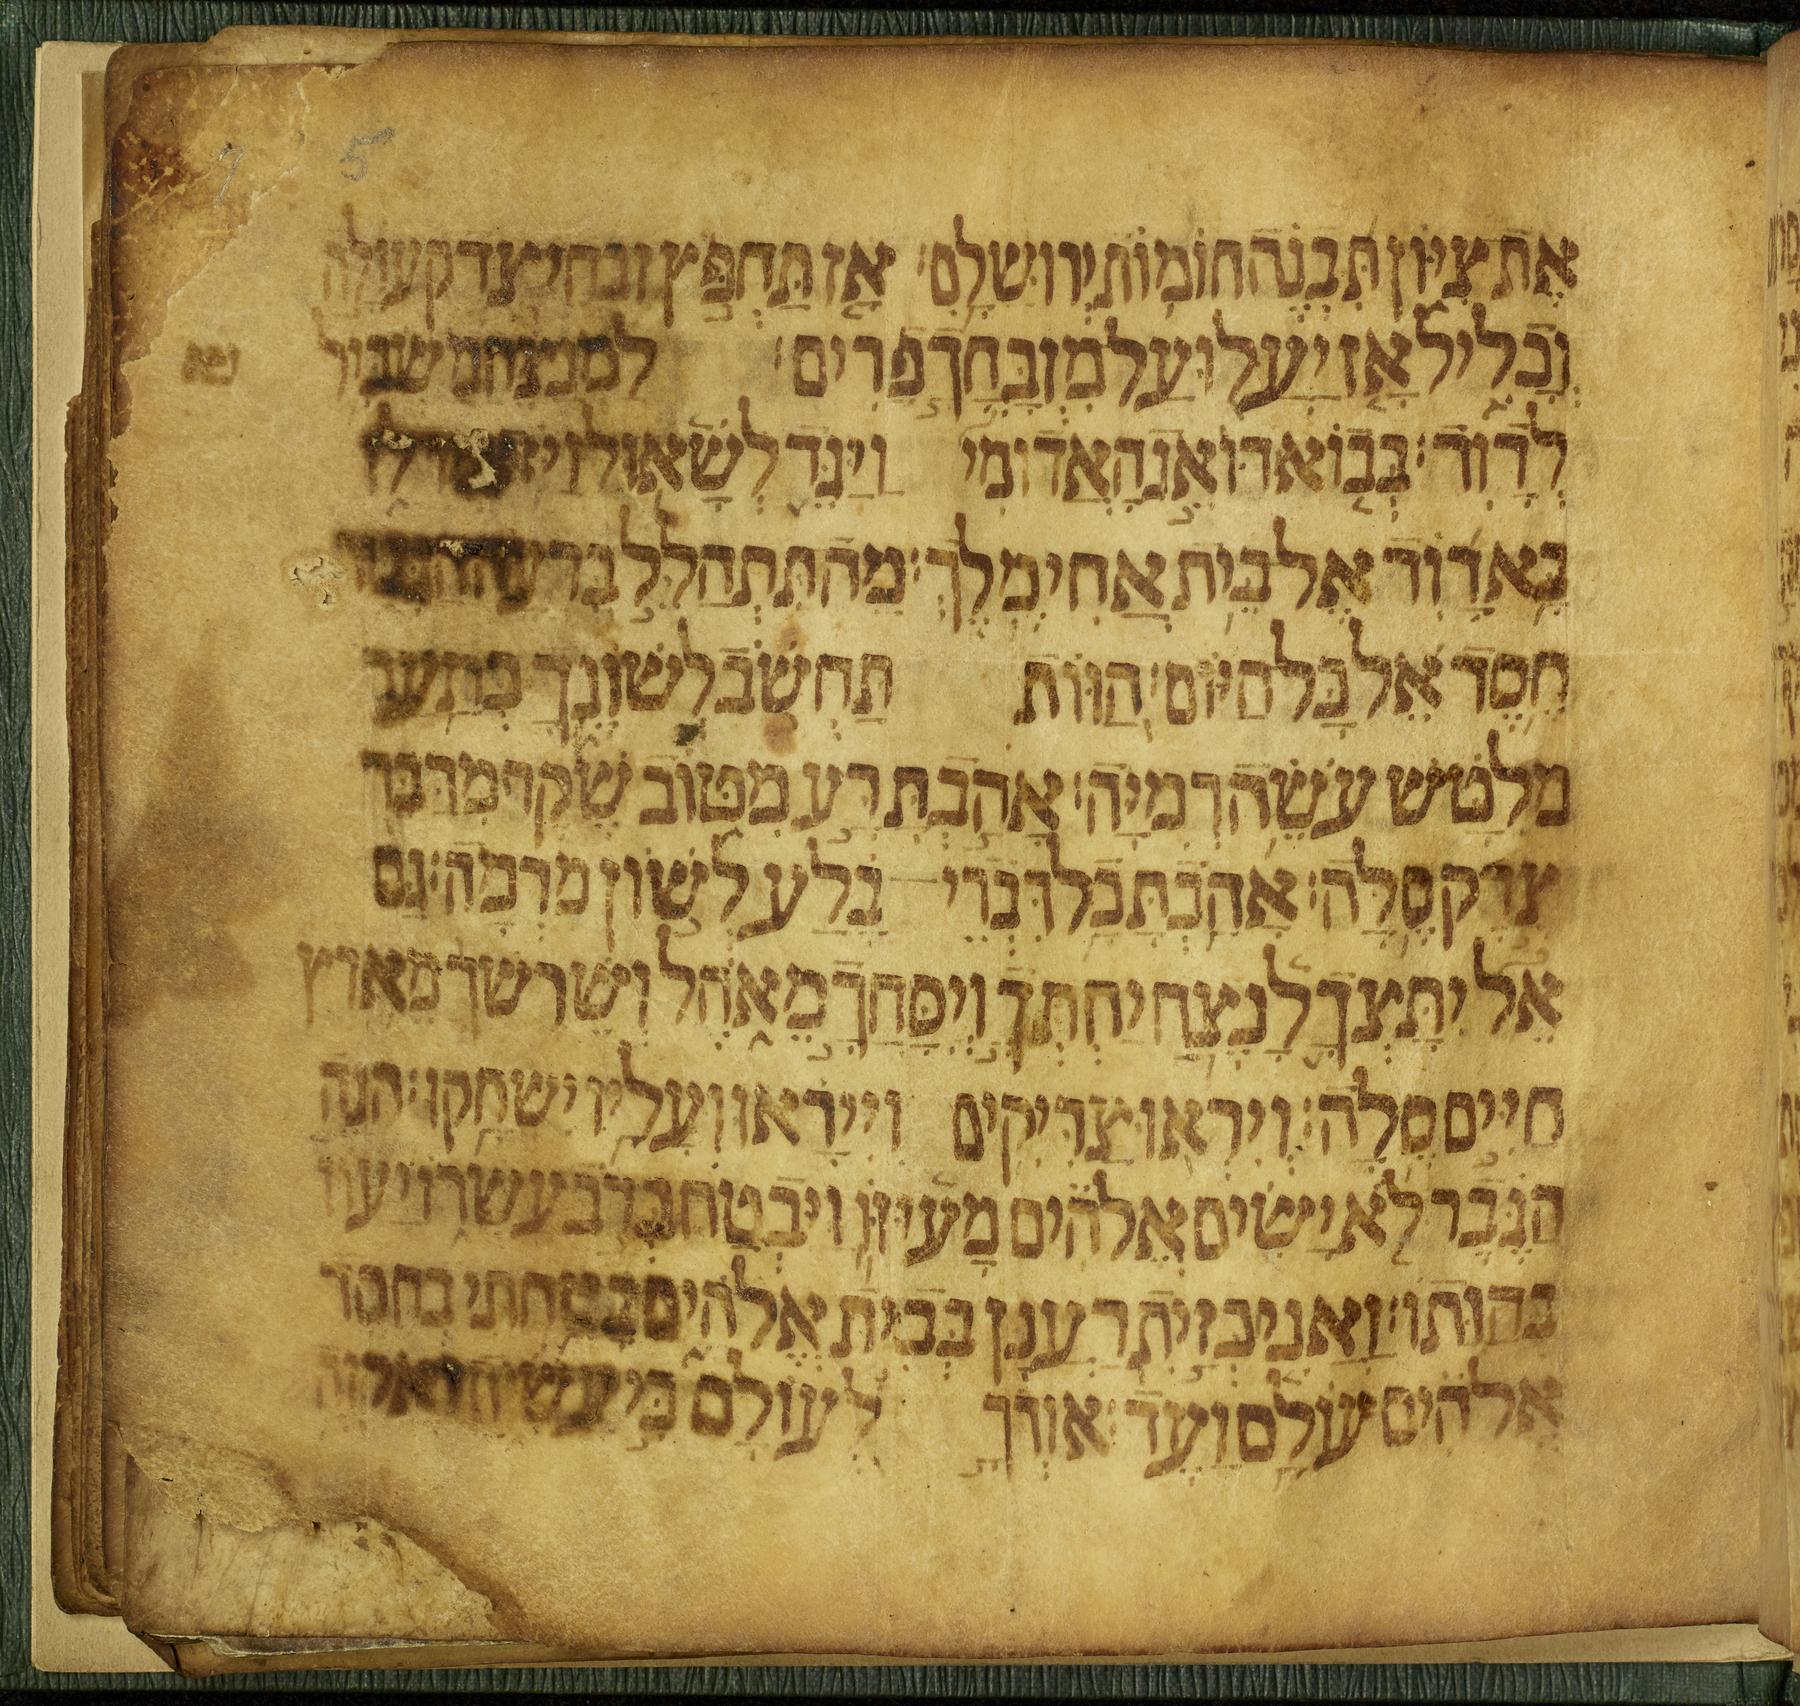 7 5
אֶת צִיּוֹן תִּבְנֶה חוֹמוֹת יְרוּשָׁלִָם׃ אָז תַּחְפֹּץ זבחי צדק עולה
וְכָלִיל אָז יַעֲלוּ עַל מִזְבַּחֲךָ פָרִים׃ למנצח משכיל
נא
לְדָוִד׃ בְּבוֹא דּוֹאֵג הָאֲדוֹמִי וַיַּגֵּד לְשָׁאוּל וי לו
בָּא דָוִד אֶל בֵּית אֲחִימֶלֶךְ׃ מַה תִּתְהַלֵּל בְּרעה הגבור
חֶסֶד אֵל כָּל הַיּוֹם׃ הַוּוֹת תַּחְשֹׁב לְשׁוֹנֶךָ כְּתַעַר
מְלֻטָּשׁ עֹשֵׂה רְמִיָּה׃ אָהַבְתָּ רָּע מִטּוֹב שֶׁקֶר מִדַּבֵּר
צֶדֶק סֶלָה׃ אָהַבְתָּ כָל דִּבְרֵי בָלַע לְשׁוֹן מִרְמָה׃ גַּם
אֵל יִתָּצְךָ לָנֶצַח יַחְתְּךָ וְיִסָּחֲךָ מֵאֹהֶל וְשֵׁרֶשְׁךָ מארץ
חַיִּים סֶלָה׃ וְיִרְאוּ צַדִּיקִים וְיִירָאוּ וְעָלָיו יִשְׂחָקוּ׃ הנה
הַגֶּבֶר לֹא יָשִׂים אֱלֹהִים מָעוּזּוֹ וַיִּבְטַח בְּרֹב עָשְׁרוֹ יָעֹז
בְּהַוָּתוֹ׃ וַאֲנִי כְּזַיִת רַעֲנָן בְּבֵית אֱלֹהִים בָּטַחְתִּי בחסד
אֱלֹהִים עוֹלָם וָעֶד׃ אוֹדְךָ לְעוֹלָם כִּי עָשִׂיתָ ואקוה